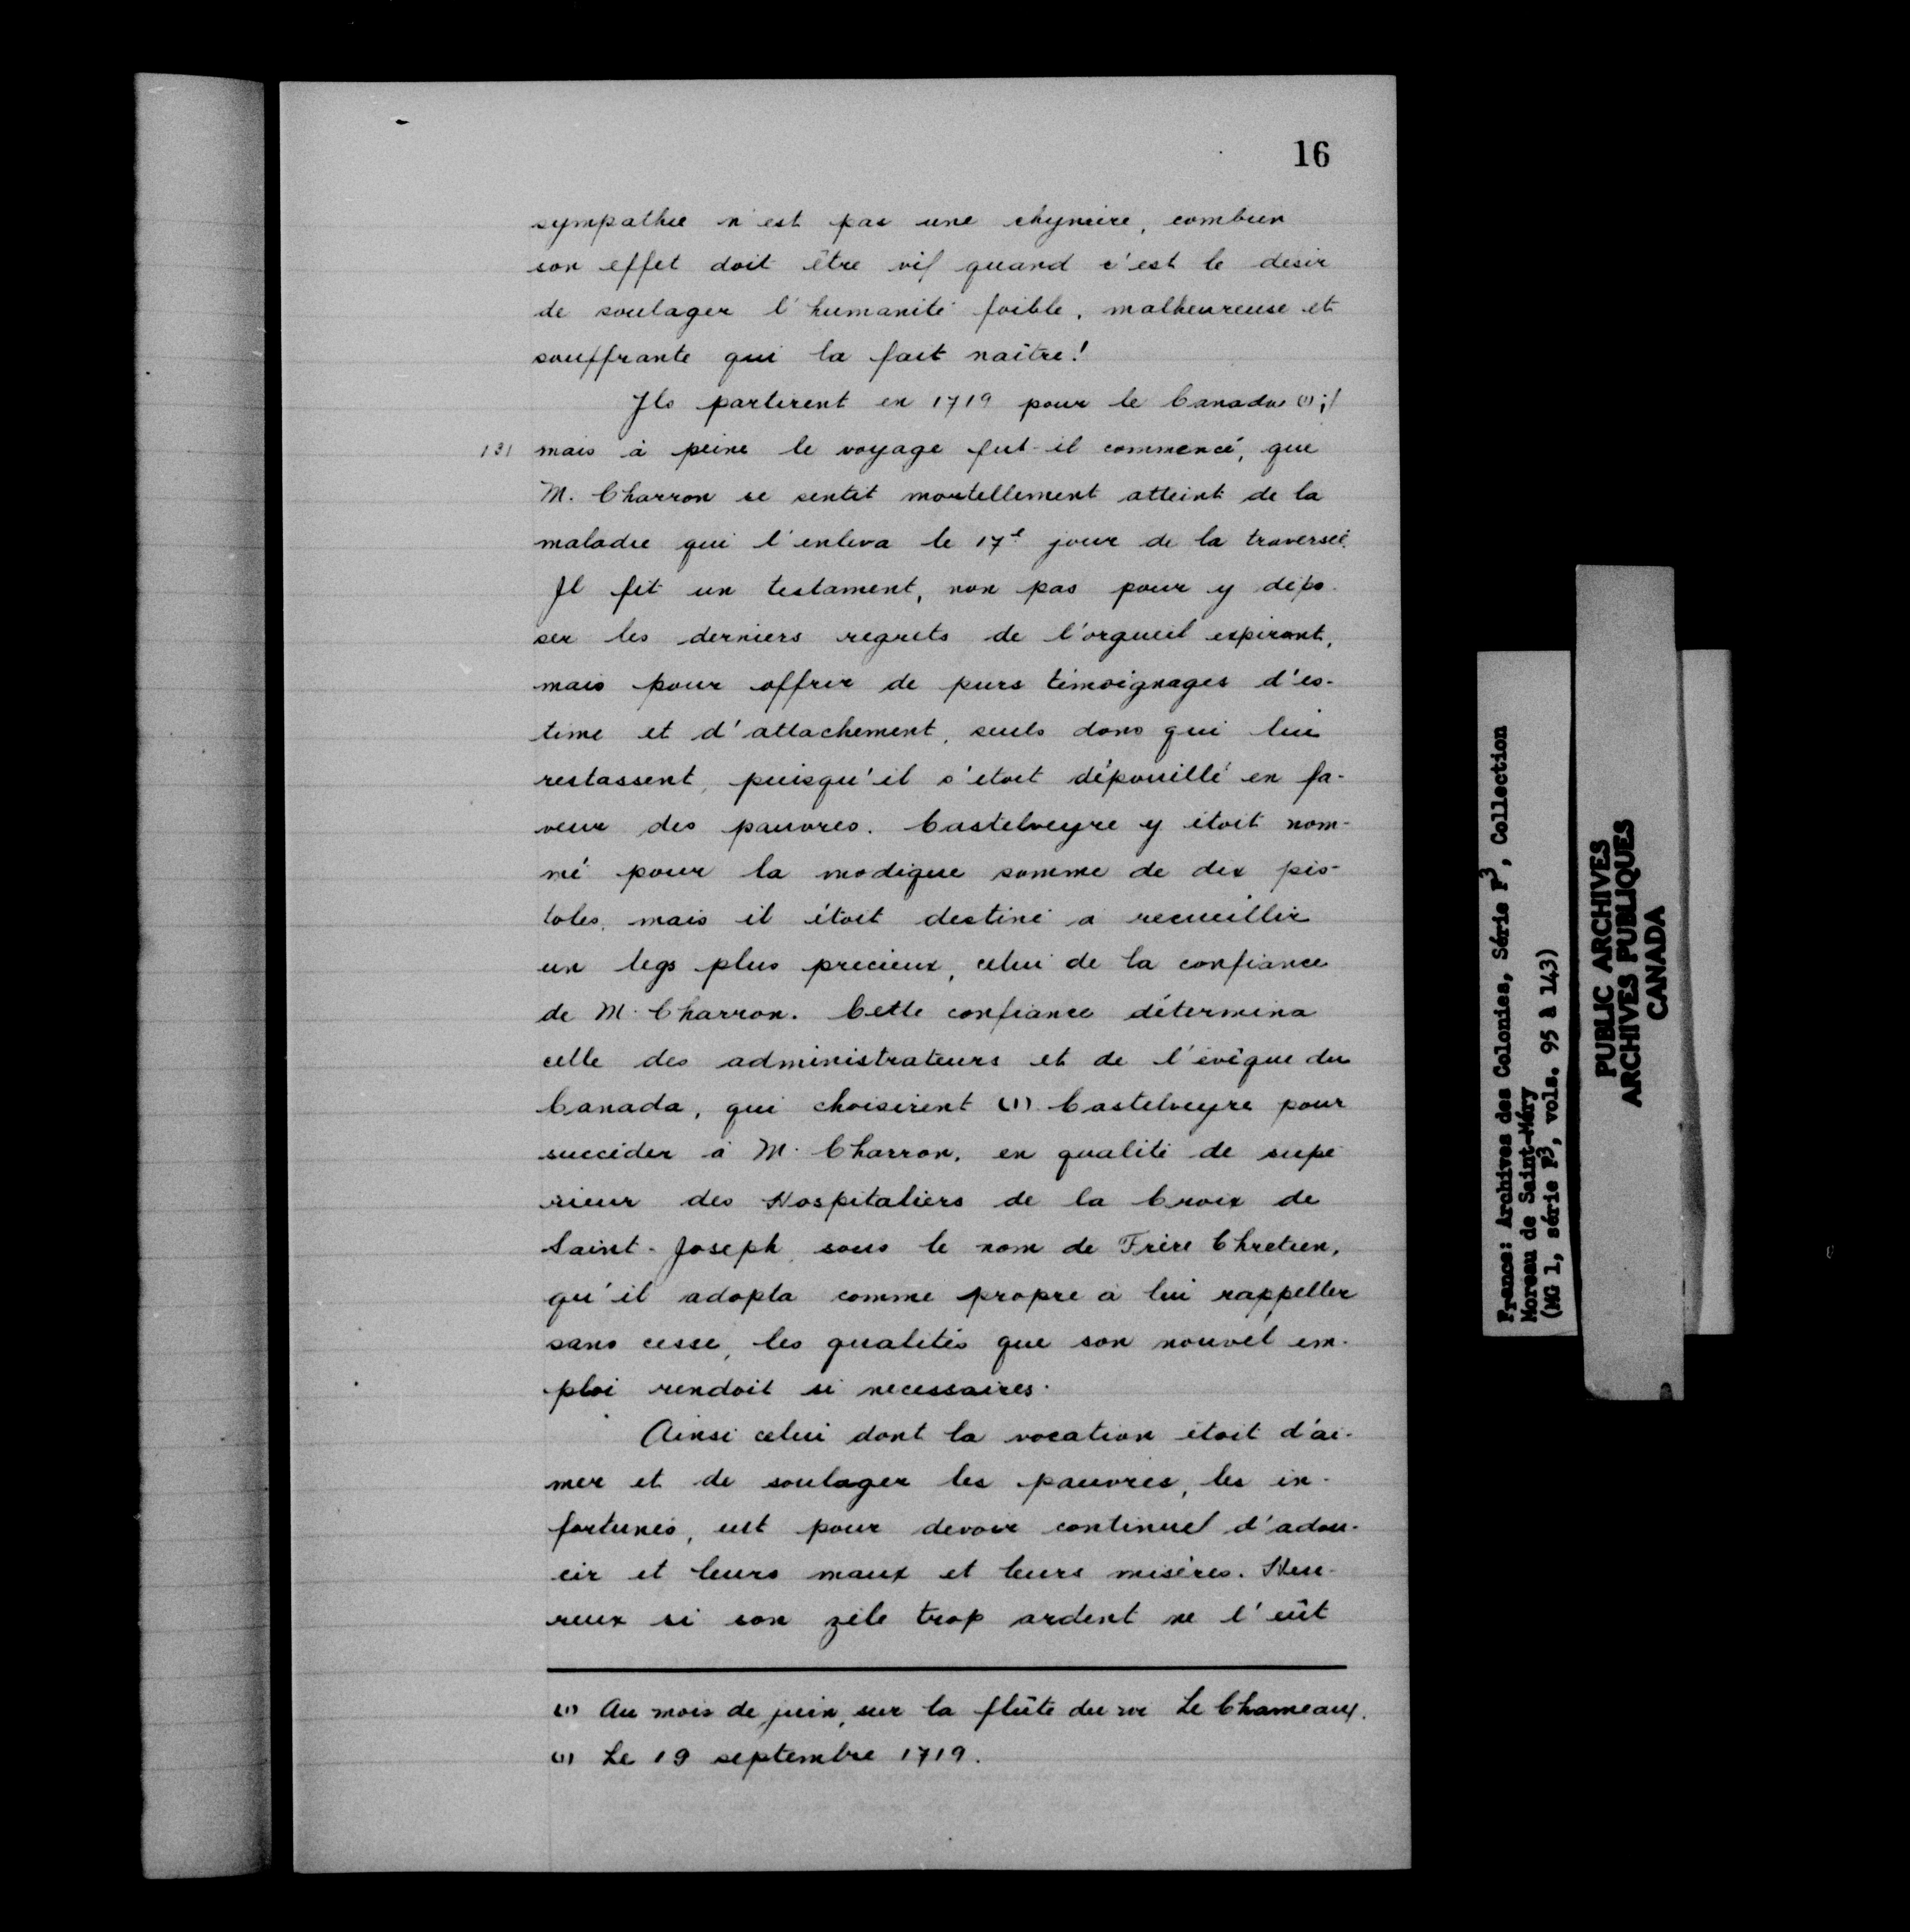 16
sympathie n'est pas une chymère, combien
son effet doit être vif quand c'est le desir
de soulager l'humanité foible, malheureuse et
souffrante qui la fait naître!
Ils partirent en 1719 pour le Canada (1);/
131 mais à peine le voyage fut-il commencé, que
M. Charron se sentit mortellement atteint de la
maladie qui l'enleva le 17e jour de la traversée.
Il fit un testament, non pas pour y dépo-
ser les derniers regrets de l'orgueil expirant,
mais pour offrir de purs témoignages d'es-
time et d'attachement, seuls dons qui lui
restassent, puisqu'il s'étoit dépouillé en fa-
veur des pauvres. Castelveyre y étoit nom-
mé pour la modique somme de dix pis-
toles, mais il étoit destiné a recueillir
un legs plus precieux, celui de la confiance
de M. Charron. Cette confiance détermina
celle des administrateurs et de l'évêque du
Canada, qui choisirent (1) Castelveyre pour
succéder à M. Charron, en qualité de supé-
rieur des Hospitaliers de la Croix de
Saint-Joseph, sous le nom de Frère Chretien,
qu'il adopta comme propre à lui rappeller
sans cesse, les qualités que son nouvel em-
ploi rendoit si necessaires.
Ainsi celui dont la vocation étoit d'ai-
mer et de soulager les pauvres, les in-
fortunés, eut pour devoir continuel d'adou-
cir et leurs maux et leurs misères. Heu-
reux si son zèle trop ardent ne l'eût
(1) Au mois de juin, sur la flûte du roi Le Chameaux.
(1) Le 19 septembre 1719.
France: Archives des Colonies, Série F3, Collection
Moreau de Saint-Méry
(MG 1, série F3, vols. 95 à 143)
PUBLIC ARCHIVES
ARCHIVES PUBLIQUES
CANADA